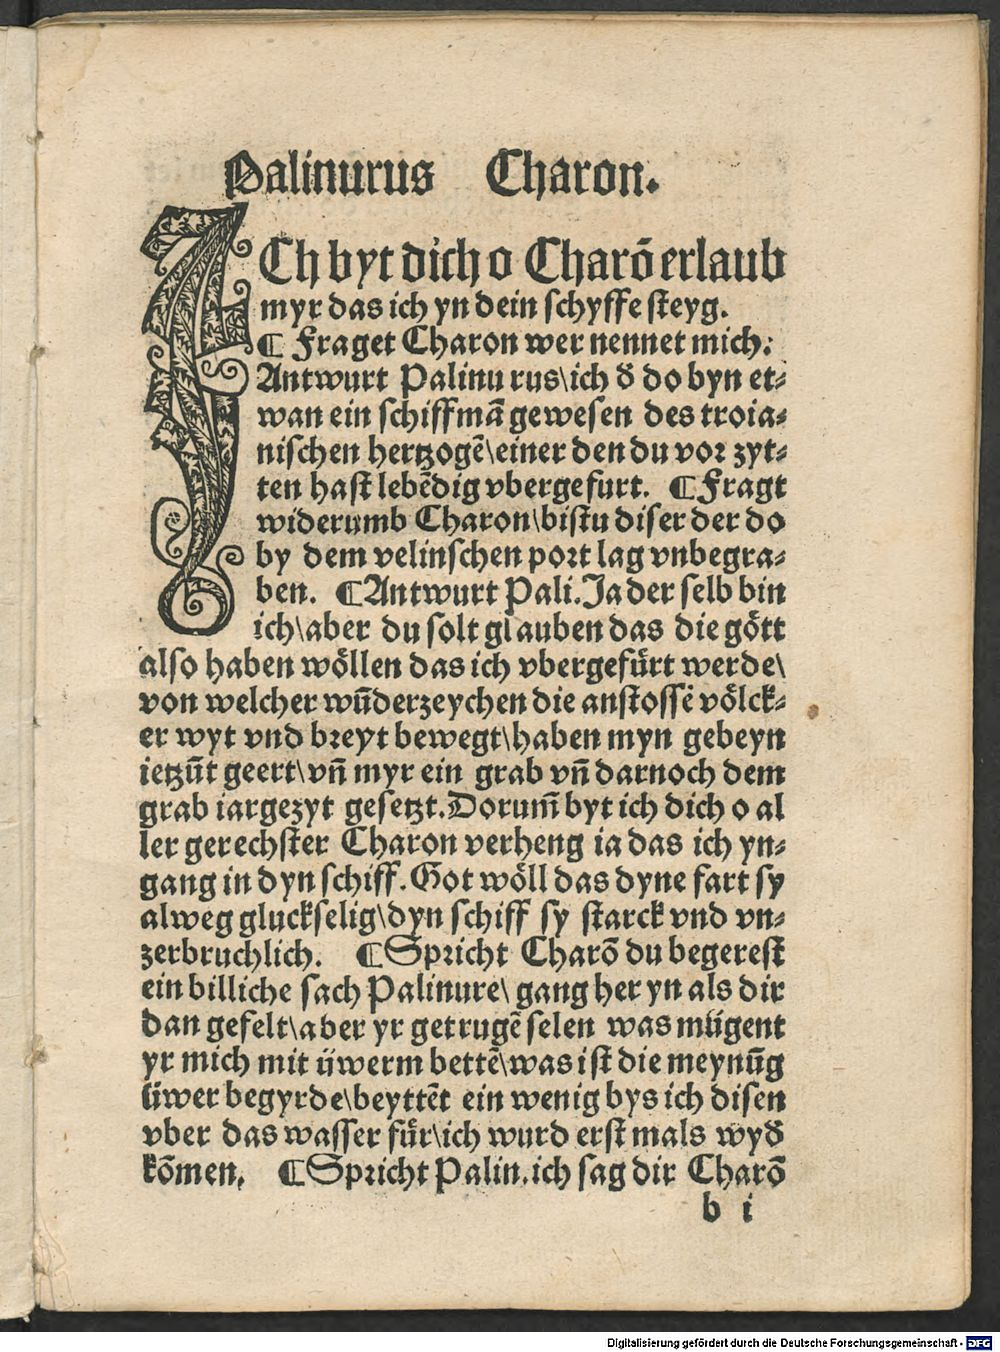 Palinurus Charon.
ICh byt dich o Charō erlaub
myr das ich yn dein schyffe steyg.
¶ Fraget Charon wer nennet mich:
Antwurt Palinu rus\ich ð do byn et⸗
wan ein schiffmā gewesen des troia⸗
nischen hertzogē\einer den du vor zyt⸗
ten hast lebēdig vbergefurt. ¶Fragt
widerumb Charon\bistu diser der do
by dem velinschen port lag vnbegra⸗
ben. ¶Antwurt Pali. Ja der selb bin
ich\aber du solt glauben das die gött
also haben wöllen das ich vbergefürt werde\
von welcher wūderzeychen die anstossē völck⸗
er wyt vnd breyt bewegt\haben myn gebeyn
ietzūt geert\vn̄ myr ein grab vn̄ darnoch dem
grab iargezyt gesetzt. Dorum̄ byt ich dich o al
ler gerechster Charon verheng ia das ich yn⸗
gang in dyn schiff. Got wöll das dyne fart sy
alweg gluckselig\dyn schiff sy starck vnd vn⸗
zerbruchlich. ¶Spricht Charō du begerest
ein billiche sach Palinure\ gang her yn als dir
dan gefelt\aber yr getrugē selen was mügent
yr mich mit üwerm bettē\was ist die meynūg
üwer begyrde\beyttēt ein wenig bys ich disen
vber das wasser für\ich wurd erst mals wyð
kōmen. ¶Spricht Palin. ich sag dir Charō
b i
Digitalisierung gefördert durch die Deutsche Forschungsgemeinschaft - DFG